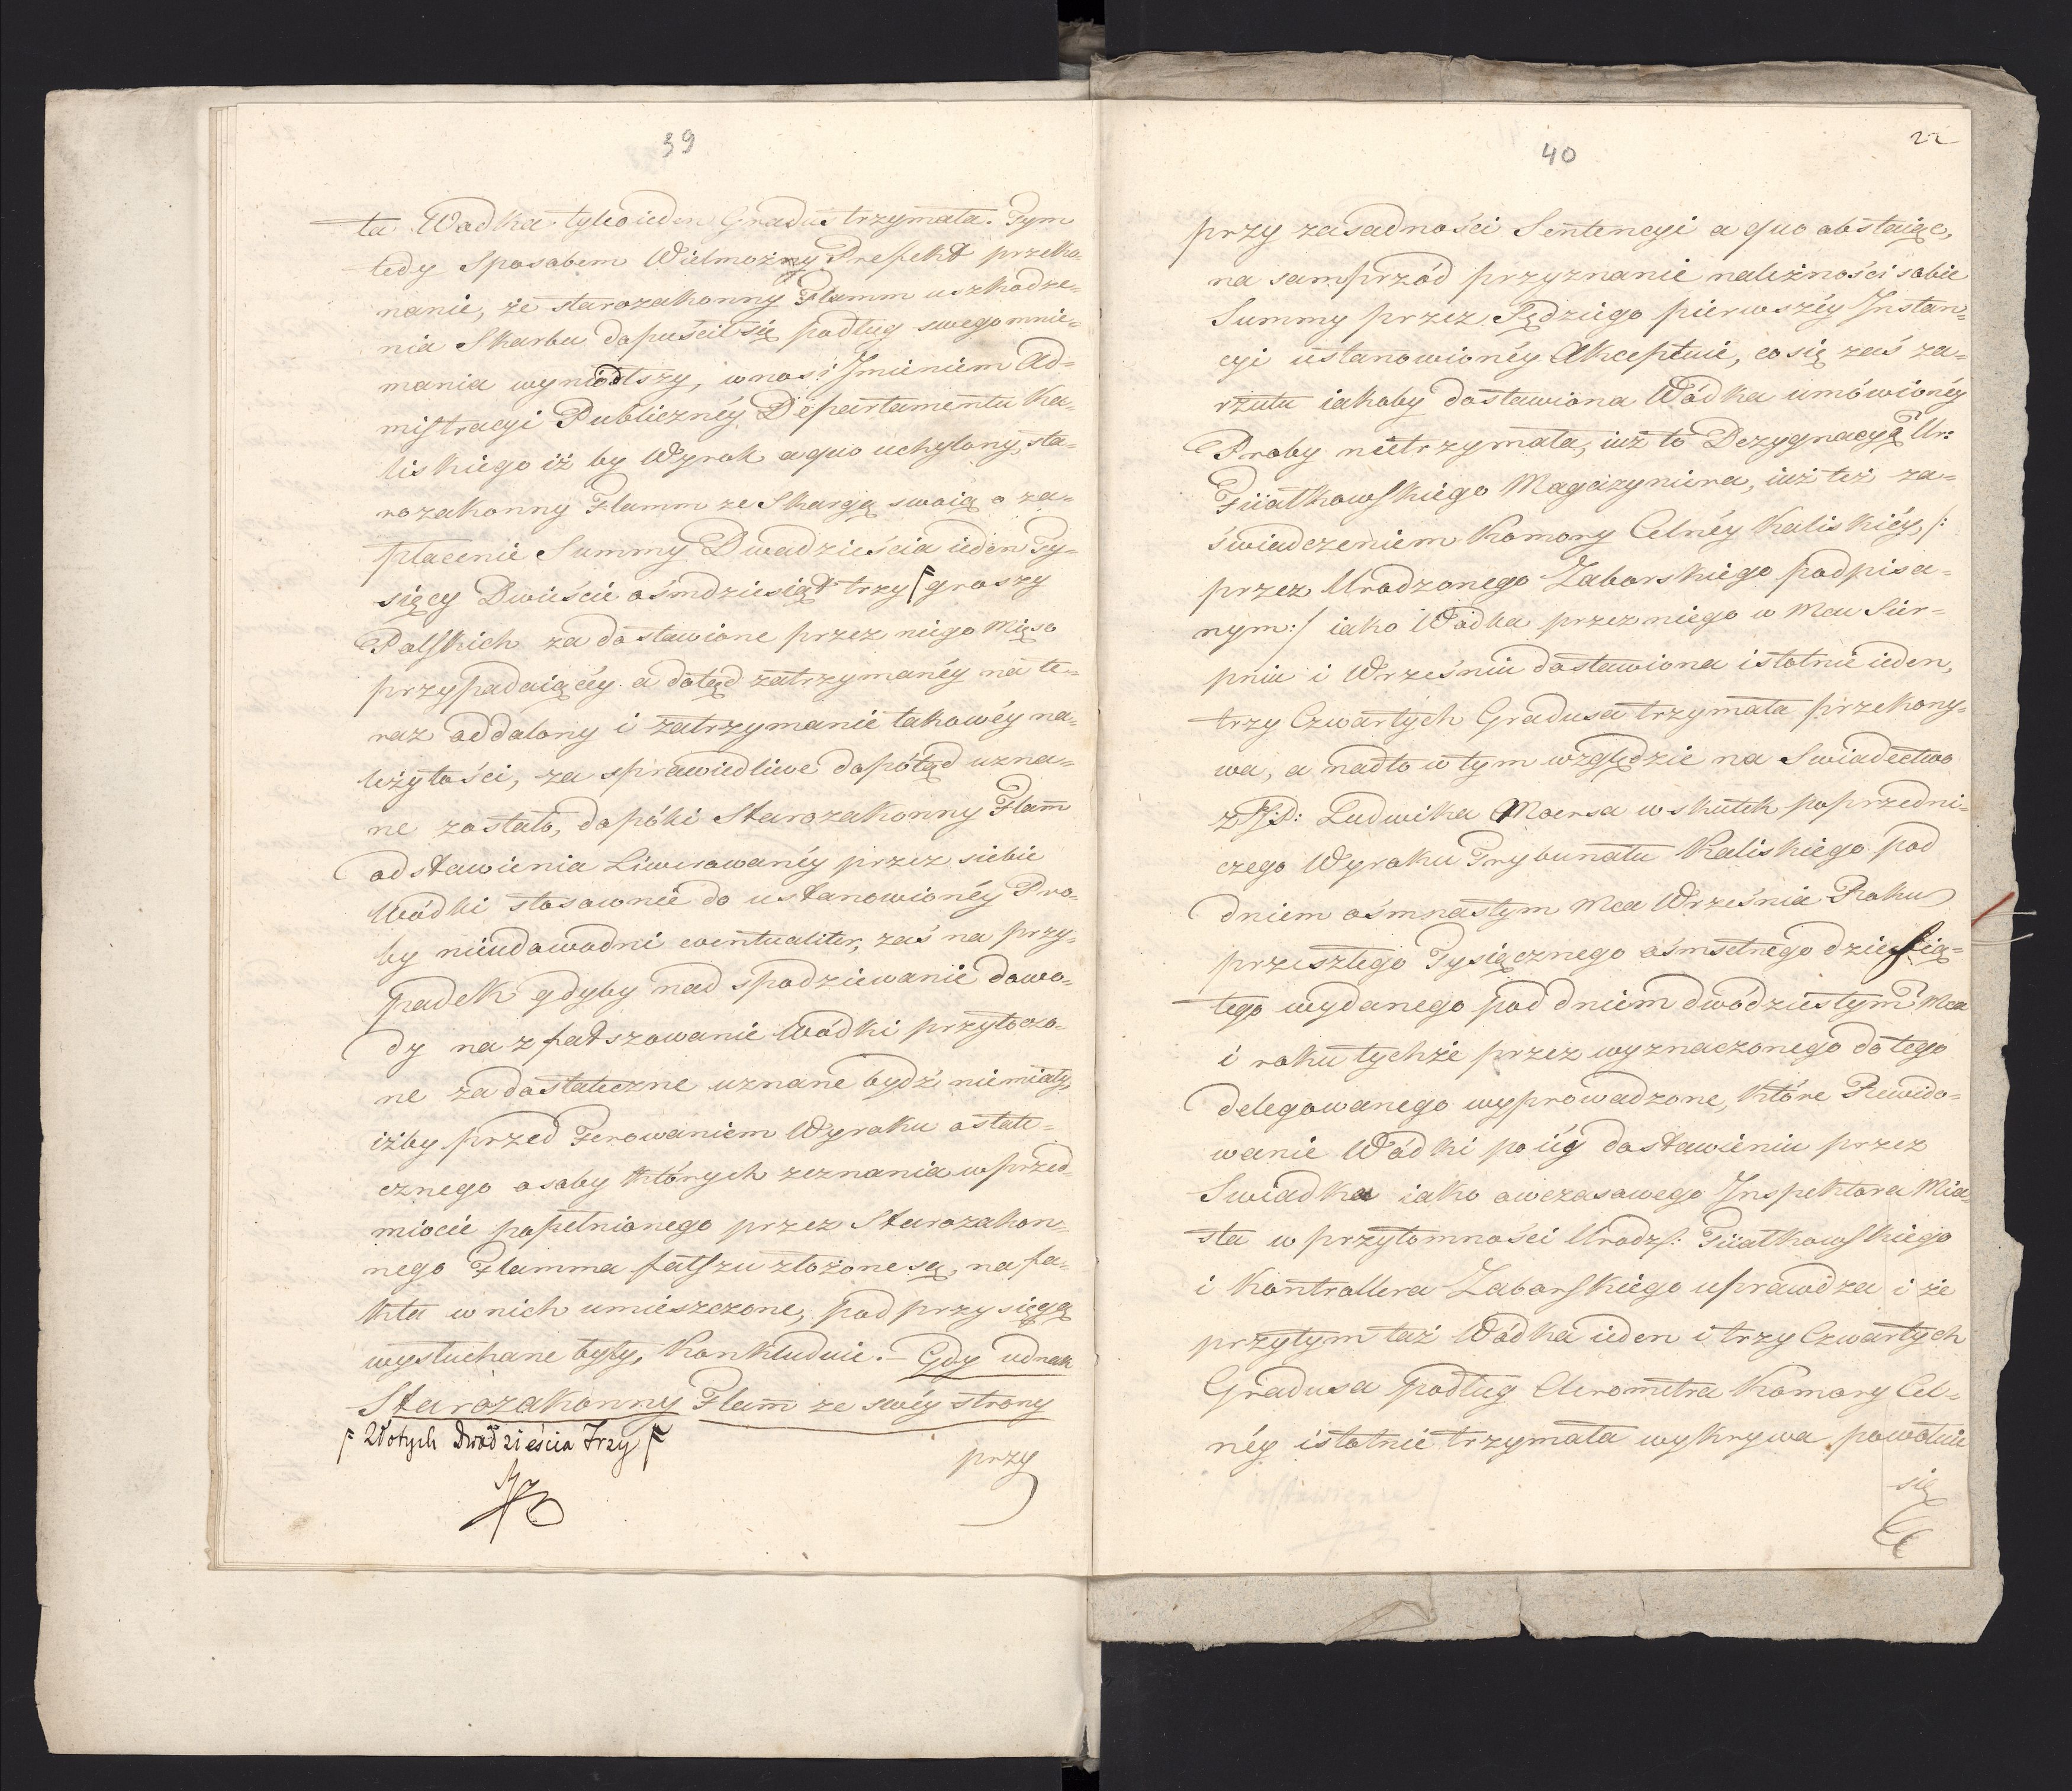 39
ta Wodka tylko ieden Gradus trzymała. Tym
tedy Sposobem Wielmożny Prefekt przeko-
nanie, że starozakonny Flamm uszkodze-
nia Skarbu dopuścił się podług swego mnie-
mania wyniódłszy, wnosi Jmieniem Ad-
mistracyi Publicznéy Departamentu Ka-
liskiego iż by Wyrok a quo uchylony, sta-
rozakonny Flamm ze Skargą swoią o za-
płacenie Summy Dwadzieścia ieden Ty-
sięcy Dwieście ośmdziesiąt trzy ꟻ groszy
Polskich za dostawione przez niego Mięso
przypadaiącéy a dotąd zatrzymanéy na te-
raz oddalony i zatrzymanie takowéy na-
leżytości, za sprawiedliwe dopótąd uzna-
ne zostało, dopóki Starozakonny Flam̄
odstawienia Liwerowanéy przez siebie
Wódki stosownie do ustanowionéy Pro-
by nieudowodni eventualiter, zaś na przy-
padek gdyby nad spodziewanie dowo-
dy na zfałszowanie Wódki przytoczo-
ne za dostateczne uznane bydź niemiały,
iżby przed Ferowaniem Wyroku ostate-
cznego osoby których zeznania w przed-
miocie popełnionego przez Starozakon-
nego Flamma fałszu złożone są, na fa-
kta w nich umieszczone, pod przysięgą
wysłuchane były, Konkluduie. — Gdy iednak
Starozakonny Flam̄ ze swéy strony
ꟻ Złotych Dwadzieścia Trzy ꟻ
przy
22
40
przy zasadności Sentencyi a quo obstaiąc,
na samprzód przyznanie należności sobie
Summy przez Sędziego pierwszéy Jnstan-
cyi ustanowionéy Akceptuie, co się zaś za-
rzutu iakoby dostawiona Wódka umówionéy
Proby nietrzymała, iuż to Dezygnacyą Ur:
Fiiałkowskiego Magazyniera, iuż też za-
świadczeniem Komory Celnéy Kaliskiéy, /:
przez Urodzonego Zaborskiego podpisa-
nym :/ iako Wódka przez niego w Mcu Sier-
pniu i Wrześniu dostawiona istotnie ieden,
trzy Czwartych Gradusa trzymała przekony-
wa, a nadto w tym względzie na Swiadectwo
Ludwika Moersa wskutek poprzedni-
czego Wyroku Trybunału Kaliskiego pod
dniem ośmnastym Mca Września Roku
przeszłego Tysiącznego ośmsetnego dziesią-
tego wydanego pod dniem dwódziestym Mca
i roku tychże przez wyznaczonego do tego
delegowanego wyprowadzone, które Rewido-
wanie Wódki po iéy dostawieniu przez
Swiadka iako owczasowego Jnspektora Mia-
sta w przytomności Urodz: Fiiałkowskiego
i Kontrollera Zaborskiego uprawdza i że
przytym taż Wódka ieden i trzy Czwartych
Gradusa podług Aerometra Komory Cel-
néy istotnie trzymała wykrywa powołuie
się